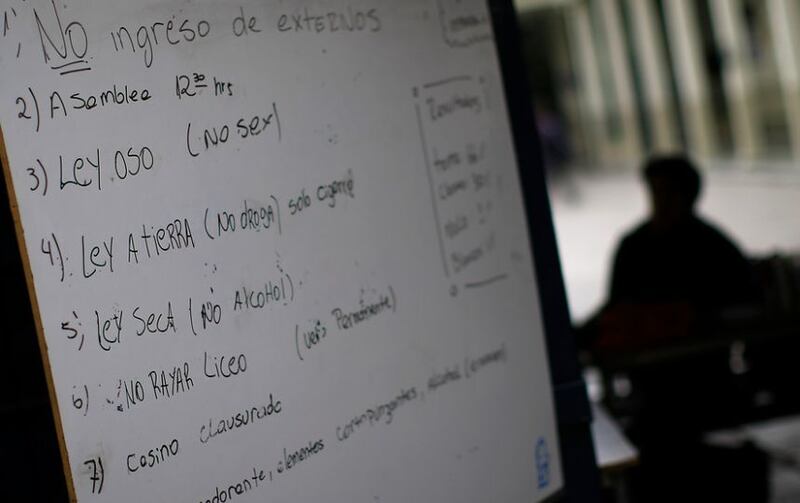 1) NO ingreso de externos
2) Asamblea 12:30 hrs
3) LEY OSO (NO sex)
4) LEY ATIERRA (NO DROGA) solo cigarro
5) LEY SECA (NO Alcohol)
6) NO RAYAR Liceo (ver Permanente)
7) Casino clausurado
elementos cortopunzantes, alcohol
Resultados